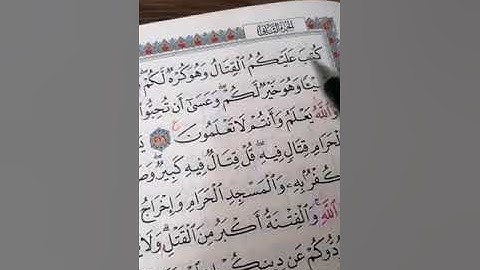 الجزء الثاني
كُتِبَ عَلَيْكُمُ ٱلْقِتَالُ وَهُوَ كُرْهٌ لَّكُمْ
وَهُوَ خَيْرٌ لَّكُمْ ۖ وَعَسَىٰٓ أَن تُحِبُّوا۟
وَٱللَّهُ يَعْلَمُ وَأَنتُمْ لَا تَعْلَمُونَ
ٱلْحَرَامِ قِتَالٍ فِيهِ ۖ قُلْ قِتَالٌ فِيهِ كَبِيرٌ ۖ
كُفْرٌۢ بِهِۦ وَٱلْمَسْجِدِ ٱلْحَرَامِ وَإِخْرَاجُ
ٱللَّهِ ۚ وَٱلْفِتْنَةُ أَكْبَرُ مِنَ ٱلْقَتْلِ ۗ وَلَا
عَن دِينِكُمْ